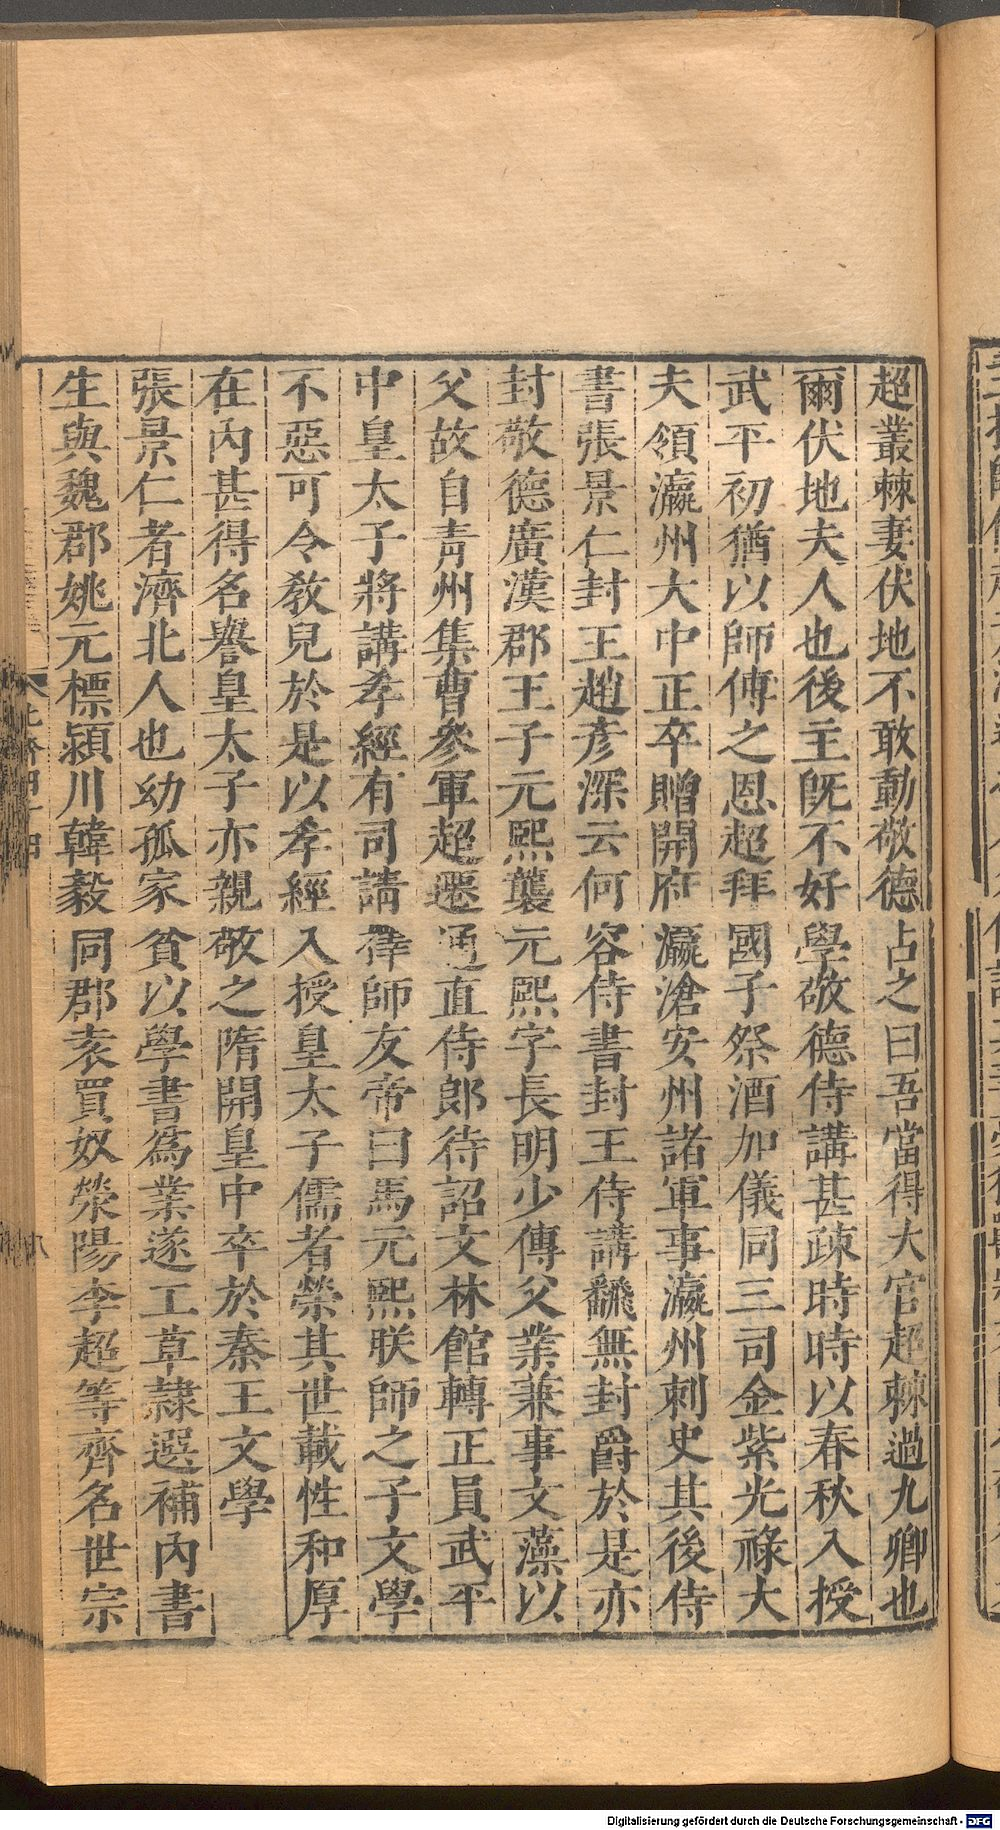 超叢棘妻伏地不敢動敬德占之曰吾當得大官超棘過九卿也
爾伏地夫人也後主旣不好學敬德侍講甚疎時時以春秋入授
武平初猶以師傅之恩超拜國子祭酒加儀同三司金紫光祿大
夫領瀛州大中正卒贈開府瀛滄安州諸軍事瀛州刺史其後侍
書張景仁封王趙彥深云何容侍書封王侍講翻無封爵於是亦
封敬德廣漢郡王子元熙襲元熙字長明少傳父業兼事文藻以
父故自青州集曹參軍超遷通直侍郎待詔文林館轉正員武平
中皇太子將講孝經有司請擇師友帝曰馬元熙朕師之子文學
不惡可令敎兒於是以孝經入授皇太子儒者榮其世載性和厚
在內甚得名譽皇太子亦親敬之隋開皇中卒於秦王文學
張景仁者濟北人也幼孤家貧以學書爲業遂工草隸選補內書
生與魏郡姚元標潁川韓毅同郡袁買奴滎陽李超等齊名世宗
北齊四十四
八
Digitalisierung gefördert durch die Deutsche Forschungsgemeinschaft - DFG